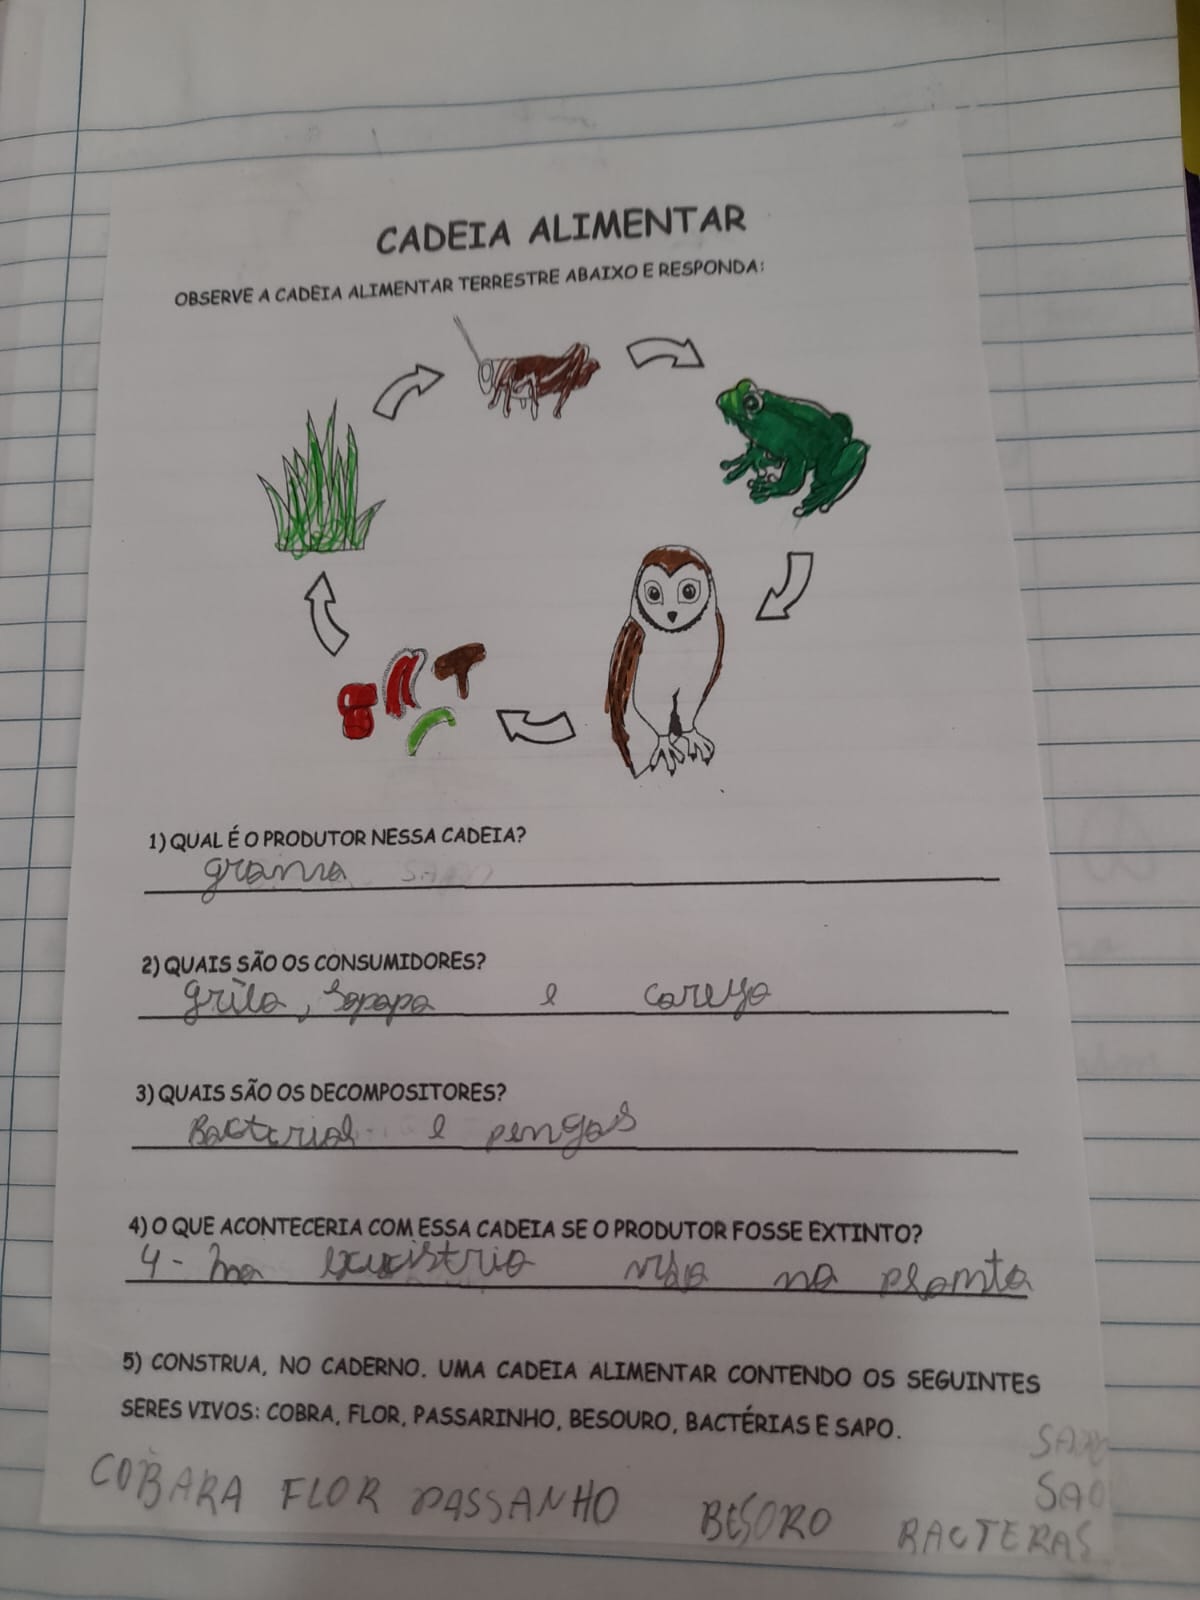 CADEIA ALIMENTAR
OBSERVE A CADEIA ALIMENTAR TERRESTRE ABAIXO E RESPONDA:
1) QUAL É O PRODUTOR NESSA CADEIA?
grama
2) QUAIS SÃO OS CONSUMIDORES?
grilo, sapapa e coruja
3) QUAIS SÃO OS DECOMPOSITORES?
Bacterias e pengos
4) O QUE ACONTECERIA COM ESSA CADEIA SE O PRODUTOR FOSSE EXTINTO?
4- na não na planta
5) CONSTRUA, NO CADERNO. UMA CADEIA ALIMENTAR CONTENDO OS SEGUINTES
SERES VIVOS: COBRA, FLOR, PASSARINHO, BESOURO, BACTÉRIAS E SAPO.
SAO
COBARA FLOR PASSANHO BESORO BACTERAS